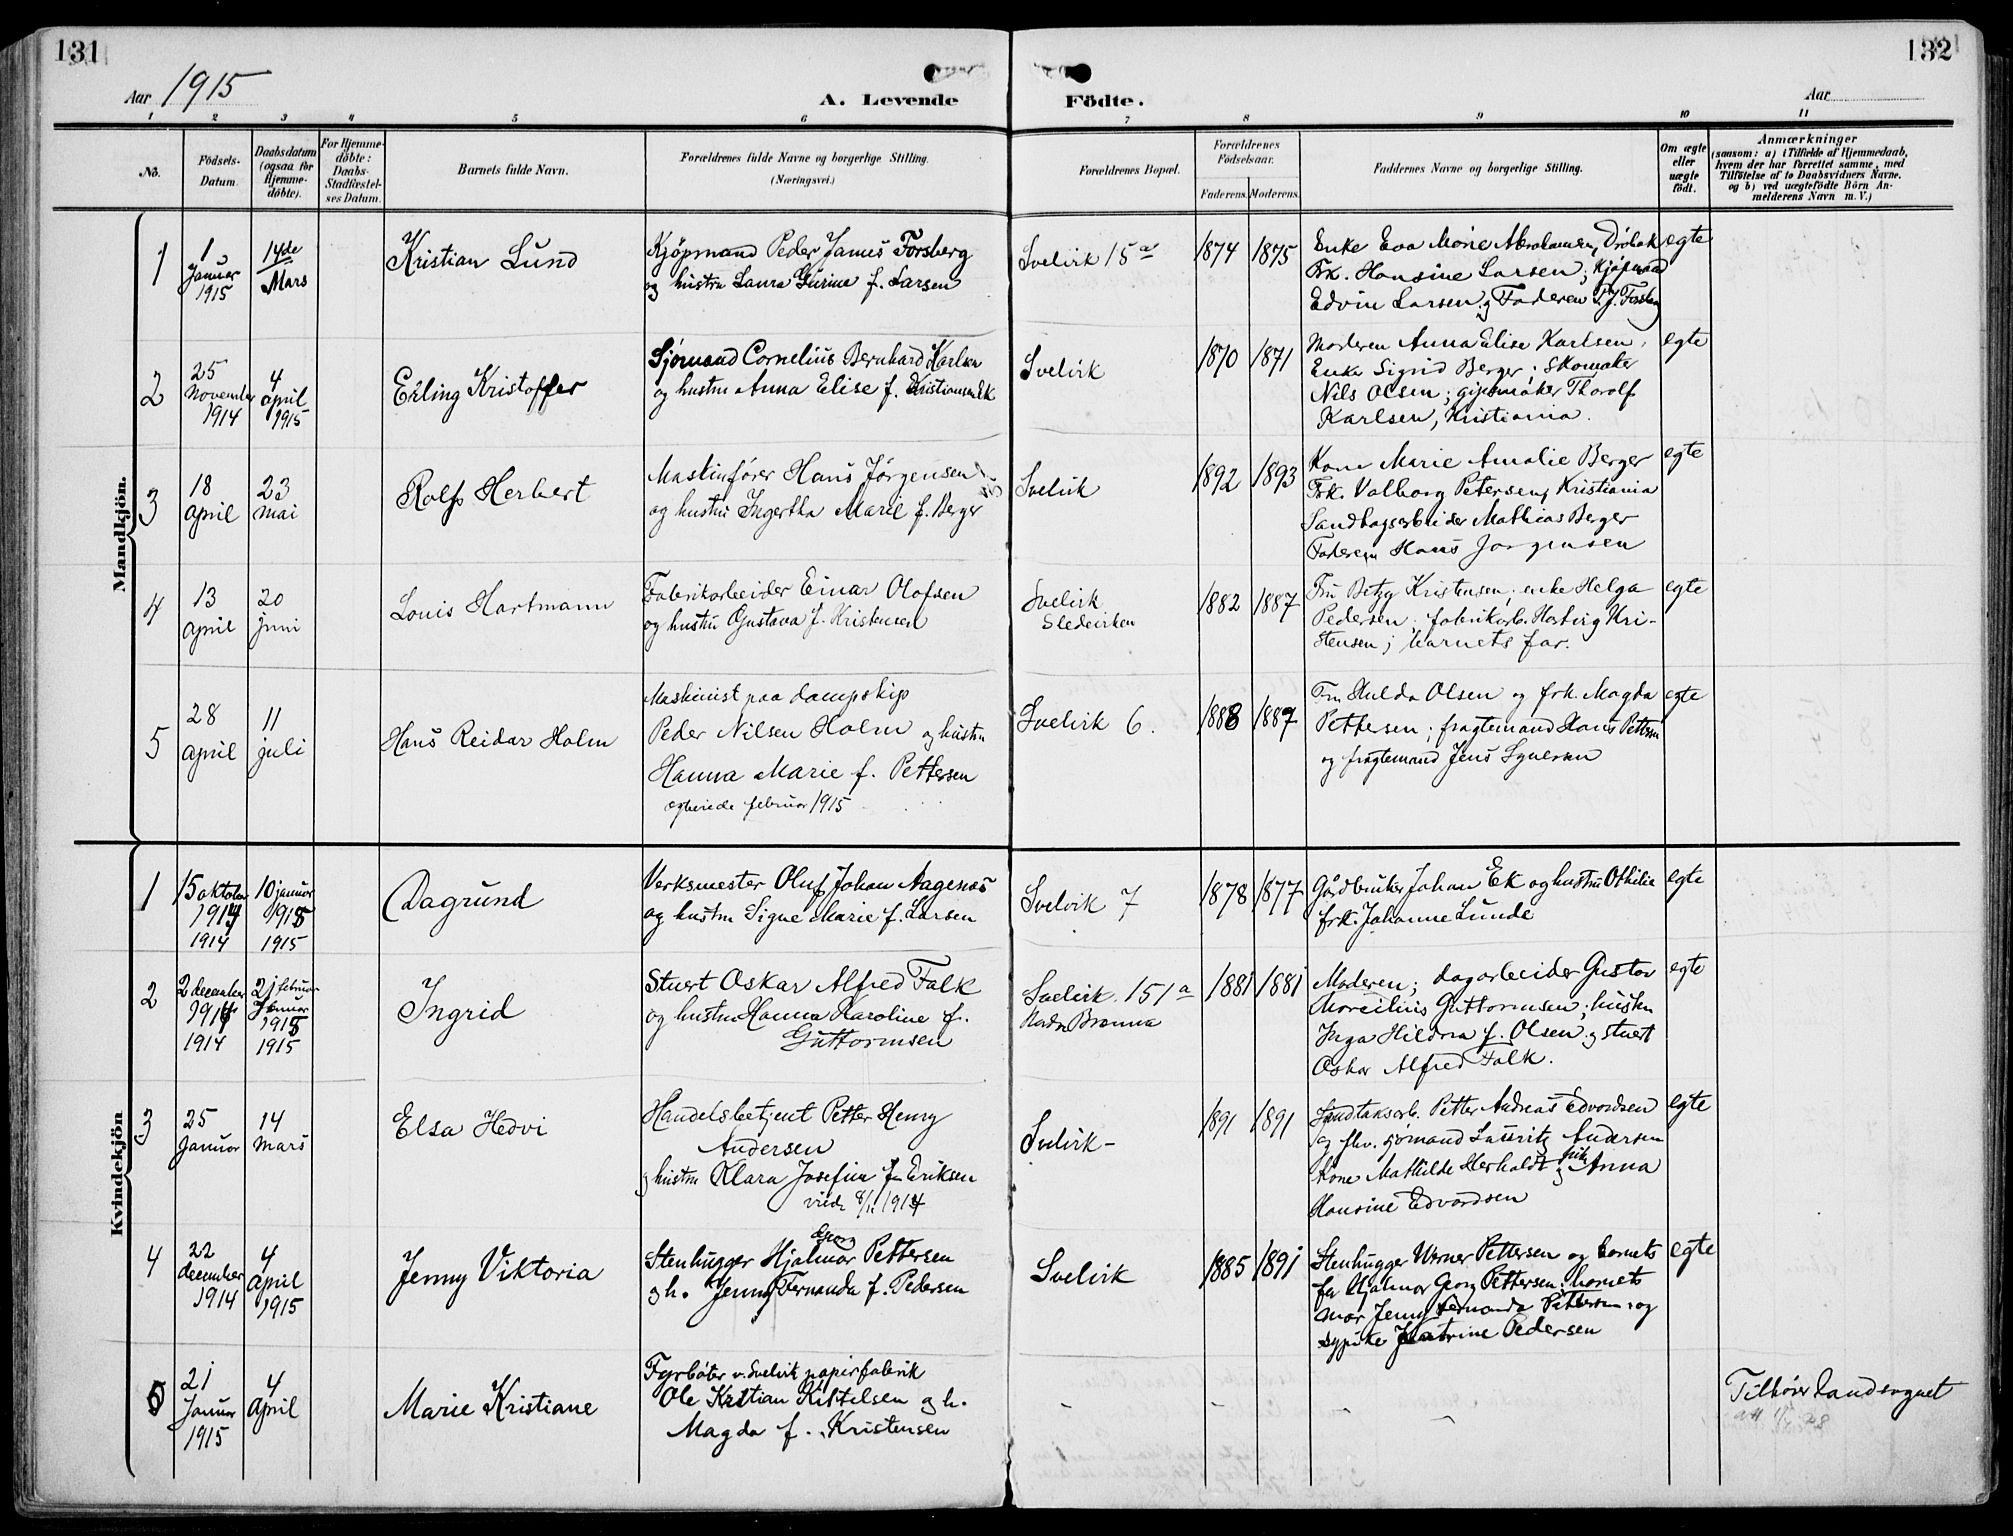 131
132
Aar 1915
A. Levende
Födte.
Aar
1 2 3 4 5 6 7 8 9 10 11
No.
Födsels-
Datum.
Daabsdatum
(ogsaa for
Hjemme-
döbte).
For Hjemme-
döbte:
Daabs-
Stadfæstel-
ses Datum.
Barnets fulde Navn.
Forældrenes fulde Navne og borgerlige Stilling.
(Næringsvei.)
Forældrenes Bopæl.
Forældrenes
Födselsaar.
Faderens.
Moderens.
Faddernes Navne og borgerlige Stilling.
Om ægte
eller
uægte
födt.
Anmærkninger
(saasom: a) i Tilfælde af Hjemmedaab,
hvem der har forrettet samme, med
Tilföielse af to Daabsvidners Navne.
og b) ved uægtefödte Börn An-
melderens Navn m. V.)
Mandkjön.
1
1
Januar
1915
14de
Mars
Kristian Lund
Kjøpmand Peder James Forsberg
og hustru Laura Gurine f. Larsen
Svelvik 15a
1874
1875
Enke Eva Marie Abrahamsen, Drøbak
Frk. Hansine Larsen; Kjøpmand
Edvin Larsen og Faderen P.J. Forsberg
egte
2
25
November
1914
4
april
1915
Erling Kristoffer
Sjømand Cornelius Bernhard Karlsen
og hustru Anna Elise f. Kristiansen Ek
Svelvik
1870
1871
Moderen Anna Elise Karlsen,
Enke Sigrid Berger; Skomaker
Nils Olsen; gipsmaker Thorolf
Karlsen, Kristiania.
egte
3
18
april
23
mai
Rolf Herbert
Maskinfører Hans Jørgensen
og hustru Ingertha Marie f. Berger
Svelvik
1892
1893
Kone Marie Amalie Berger
Frk. Valborg Petersen, Kristiania
Sandtagsarbeider Mathias Berger
Faderen Hans Jørgensen
egte
4
13
april
20
juni
Louis Hartmann
Fabrikarbeider Einar Olafsen
og hustru Gustava f. Kristensen
Svelvik
Sledvirken
1882
1887
Fru Betzy Kristensen; enke Helga
Pedersen; fabrikarb. Hartvig Kri-
stensen; barnets far.
egte
5
28
april
11
juli
Hans Reidar Holm
Maskinist paa dampskip
Peder Nilsen Holm og hustru
Hanna Marie f. Pettersen
egteviede februar 1915
Svelvik 6.
1888
1887
Fru Hulda Olsen og frk. Magda
Pettersen; fragtemand Hans Pettersen
og fragtemand Jens Syversen
egte
Kvindekjön
1
15 oktober
1914
1914
10 januar
1915
1915
Dagrund
Verksmester Oluf Johan Aagenæs
og hustru Signe Marie f. Larsen
Svelvik 7
1878
1877
Gårdbruker Johan Ek og hustru Othilie
frk. Johanne Lunde
egte
2
2 december
1914
1914
21 februar
Januar
1915
1915
Ingrid
Stuert Oskar Alfred Falk
og hustru Hanna Karoline f.
Guttormsen
Svelvik 151a
Nordre Brenna
1881
1881
Moderen; dagarbeider Gustav
Marcelius Guttormsen; hustru
Inga Hildria f. Olsen og stuert
Oskar Alfred Falk.
egte
3
25
Januar
14
mars
Elsa Hedvi
Handelsbetjent Petter Henry
Andersen
og hustru Klara Josefine f. Eriksen
viede 8/11 1914
Svelvik -
1891
1891
Sandtaksarb. Petter Andreas Edvardsen
og fhv. sjømand Lauritz Andersen
Kone Mathilde Herholdt og pike Anna
Hansine Edvardsen
egte
4
22
december
1914
4
April
1915
Jenny Viktoria
Georg
Stenhugger Hjalmar Pettersen
og h. Jenny Fernanda f. Pedersen
Svelvik
1885
1891
Stenhugger Werner Pettersen og barnets
far Hjalmar Georg Pettersen; barnets
mor Jenny Fernanda Pettersen og
sypike Katrine Pedersen
egte
5
21
Januar
1915
4
April
Marie Kristiane
Fyrbøter v. Svelvik papirfabrik
Ole Kristian Kittelsen og h.
Magda f. Kristensen
Tilhører Landsognet